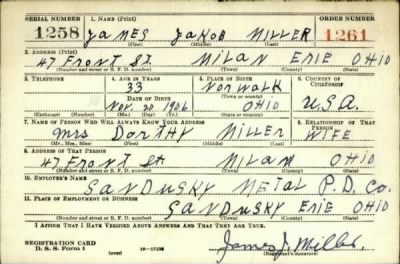 SERIAL NUMBER 1. NAME (Print) ORDER NUMBER
1258 JAMES JAKOB MILLER 1261
(First) (Middle) (Last)
2. ADDRESS (Print)
47 FRONT St. MILAN ERIE OHIO
(Number and street or R. F. D. number) (Town) (County) (State)
3. TELEPHONE 4. AGE IN YEARS 5. PLACE OF BIRTH 6. COUNTRY OF CITIZENSHIP
33 NORWALK
(Town or county)
DATE OF BIRTH
Nov. 20 1906 OHIO U.S.A.
(Exchange) (Number) (Mo.) (Day) (Yr.) (State or country)
7. NAME OF PERSON WHO WILL ALWAYS KNOW YOUR ADDRESS 8. RELATIONSHIP OF THAT PERSON
Mrs DORTHY MILLER WIFE
(Mr., Mrs., Miss) (First) (Middle) (Last)
9. ADDRESS OF THAT PERSON
47 FRONT St MILAN OHIO
(Number and street or R. F. D. number) (Town) (County) (State)
10. EMPLOYER'S NAME
SANDUSKY METAL P.D. CO.
11. PLACE OF EMPLOYMENT OR BUSINESS
SANDUSKY ERIE OHIO
(Number and street or R. F. D. number) (Town) (County) (State)
I AFFIRM THAT I HAVE VERIFIED ABOVE ANSWERS AND THAT THEY ARE TRUE.
REGISTRATION CARD
D. S. S. Form 1 James J. Miller
(Registrant's signature)